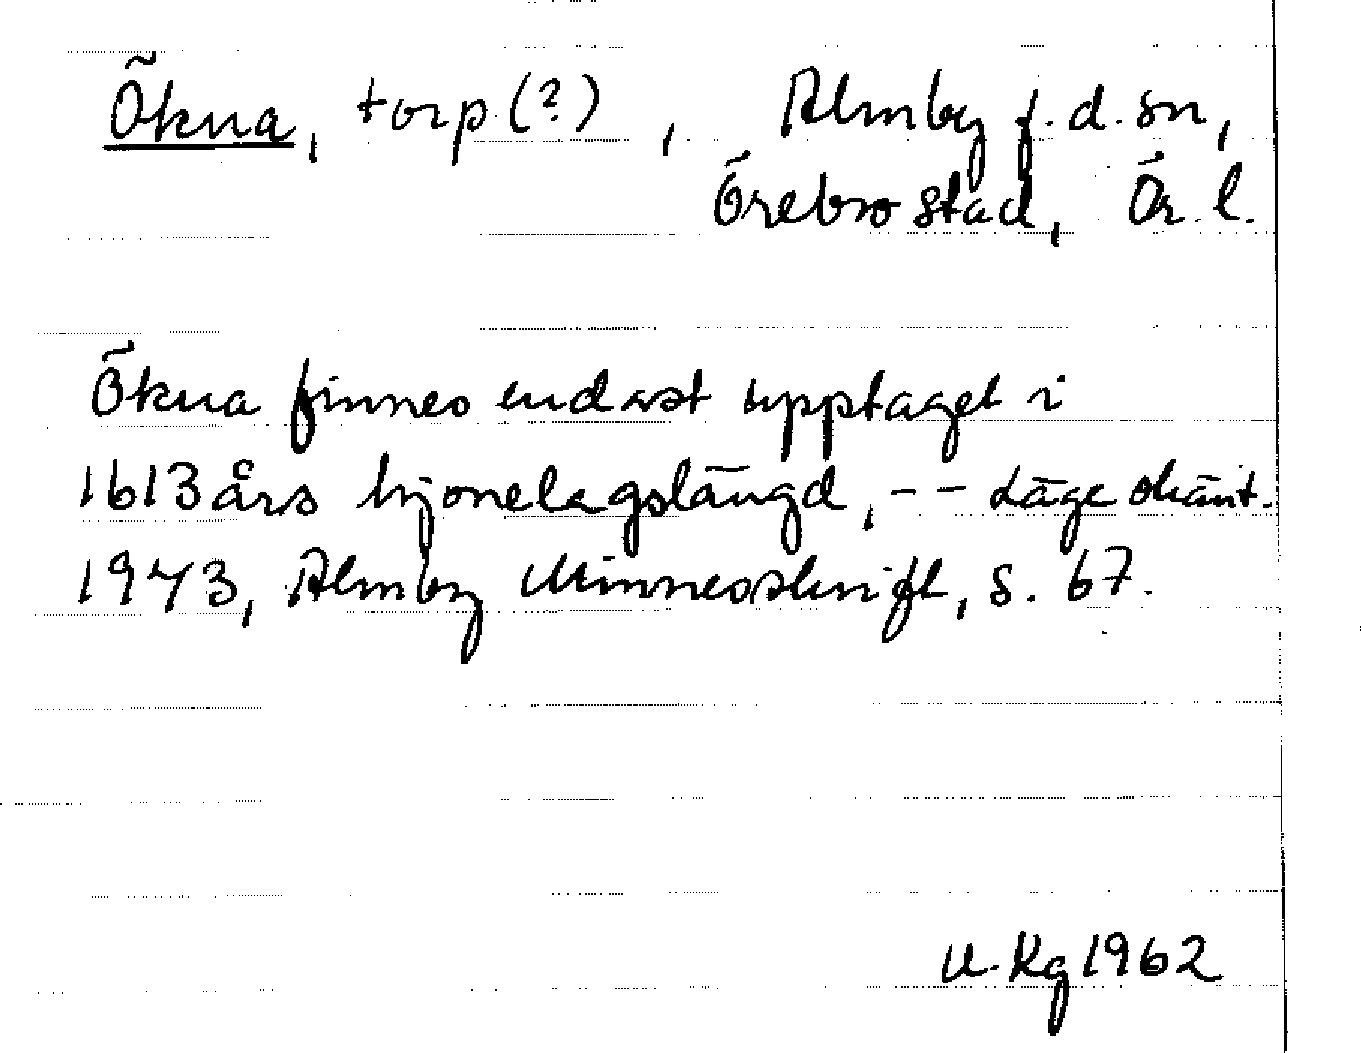 Ökna, torp (?), Almby f.d. sn,
Örebro stad, Ör. l.
Ökna finnes endast upptaget i
1613 års hjonelagslängd, - - Läge okänt.
1943, Almby Minnesskrift, s. 67.
U. Kg 1962